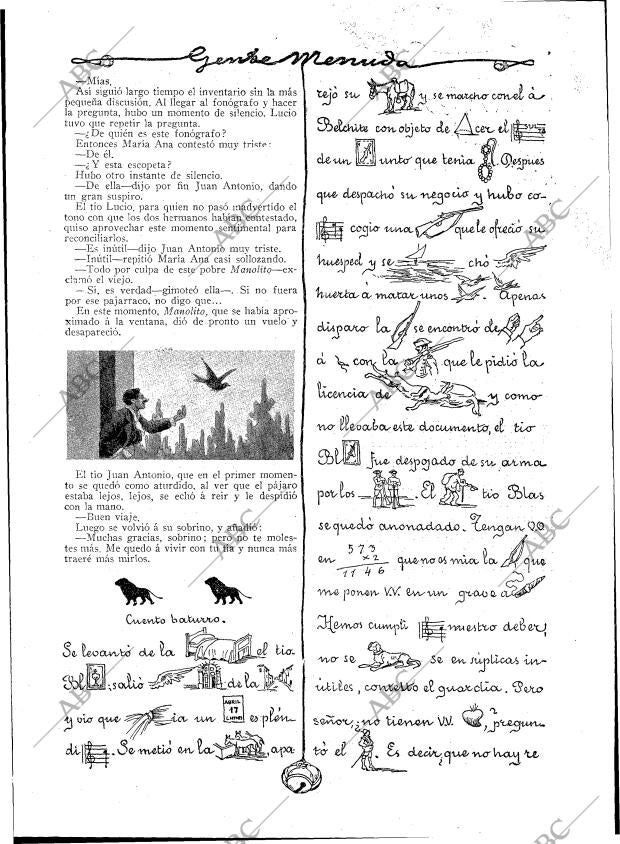 Gente Menuda
—Mías.
Así siguió largo tiempo el inventario sin la más
pequeña discusión. Al llegar al fonógrafo y hacer
la pregunta, hubo un momento de silencio. Lucio
tuvo que repetir la pregunta.
—¿De quién es este fonógrafo?
Entonces María Ana contestó muy triste:
—De él.
—¿Y esta escopeta?
Hubo otro instante de silencio.
—De ella—dijo por fin Juan Antonio, dando
un gran suspiro.
El tío Lucio, para quien no pasó inadvertido el
tono con que los dos hermanos habían contestado,
quiso aprovechar este momento sentimental para
reconciliarlos.
—Es inútil—dijo Juan Antonio muy triste.
—Inútil—repitió María Ana casi sollozando.
—Todo por culpa de este pobre Manolito—ex-
clamó el viejo.
—Sí, es verdad—gimoteó ella—. Si no fuera
por ese pajarraco, no digo que...
En este momento, Manolito, que se había apro-
ximado á la ventana, dió de pronto un vuelo y
desapareció.
El tío Juan Antonio, que en el primer momen-
to se quedó como aturdido, al ver que el pájaro
estaba lejos, lejos, se echó á reir y le despidió
con la mano.
—Buen viaje.
Luego se volvió á su sobrino, y añadió:
—Muchas gracias, sobrino; pero no te moles-
tes más. Me quedo á vivir con tu tía y nunca más
traeré más mirlos.
Cuento baturro.
Se levantó de la el tío
Bl salió de la
y vio que ia un ABRIL 17 LUNES es plén-
di . Se metió en la , apa
rejó su y se marchó con el á
Belchite con objeto de cer el
de un unto que tenía . Despues
que despachó su negocio y hubo co-
cogio una que le ofreció su
huesped y se chó
huerta á matar unos . Apenas
disparo la se encontró de
á con la que le pidió la
licencia de y como
no llevaba este documento, el tio
Bl fue despojado de su arma
por los . El tio Blas
se quedó anonadado. Tengan
en 573
x2
1146 que no es mia la que
me ponen VV. en un grave a
Hemos cumpli nuestro deber,
no se se en súplicas in-
útiles, contestó el guardia. Pero
señor, ¿no tienen VV. ?, pregun-
tó el . Es decir, que no hay re
ABC